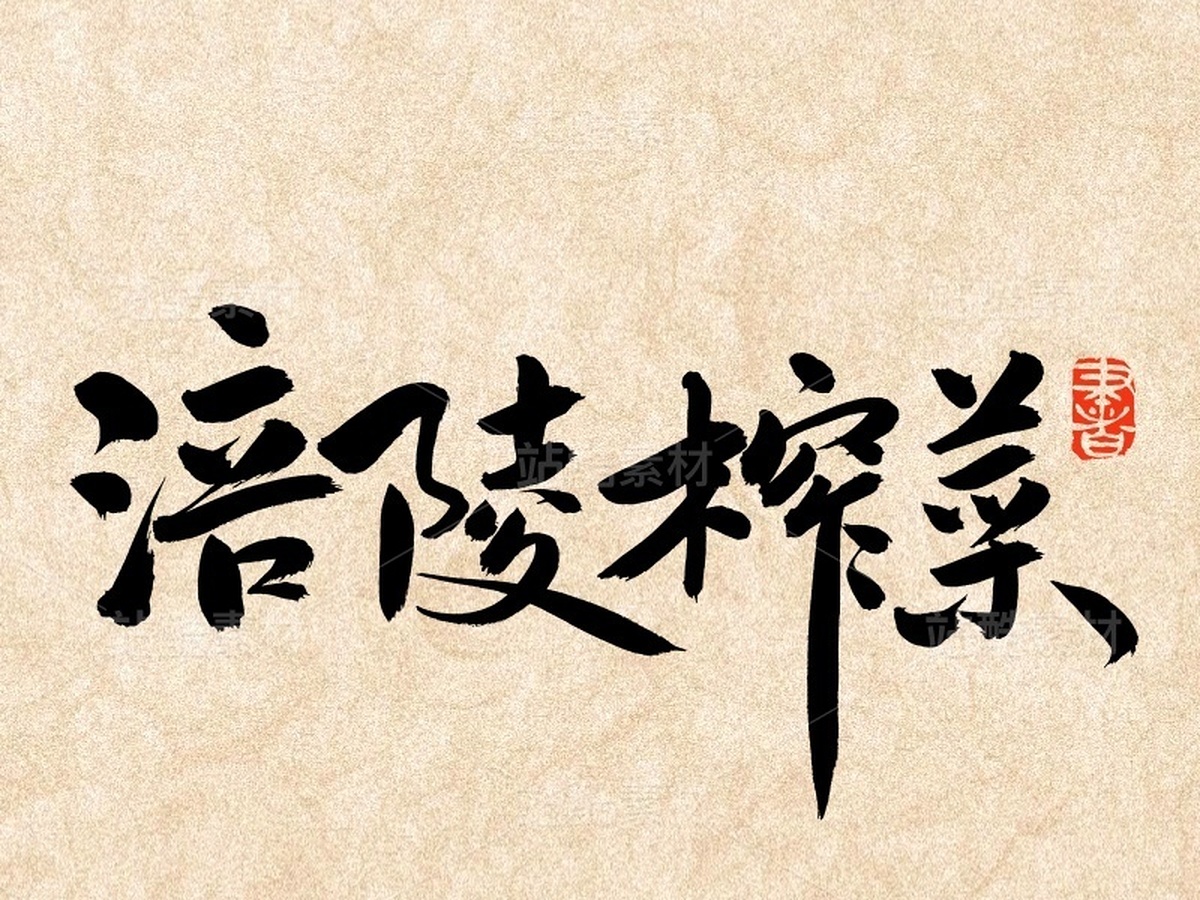 涪陵榨菜
站酷素材